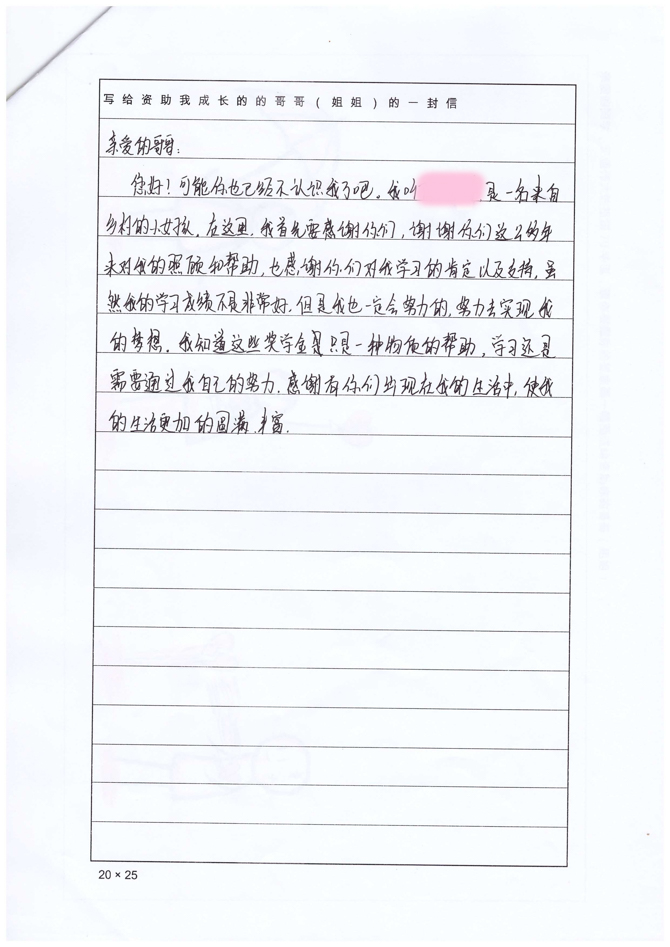 写给资助我成长的的哥哥(姐姐)的一封信
亲爱的哥哥:
您好!可能你也已经不认识我了吧。我叫 是一名来自
乡村的小女孩。在这里,我首先要感谢你们,谢谢你们这么多年
来对我的照顾和帮助,也感谢你们对我学习的肯定以及支持,虽
然我的学习成绩不是非常好.但是我也一定会努力的,努力去实现我
的梦想。我知道这些奖学金是只是一种物质的帮助,学习还是
需要通过我自己的努力.感谢有你们出现在我的生活中,使我
的生活更加的圆满.丰富.
20×25